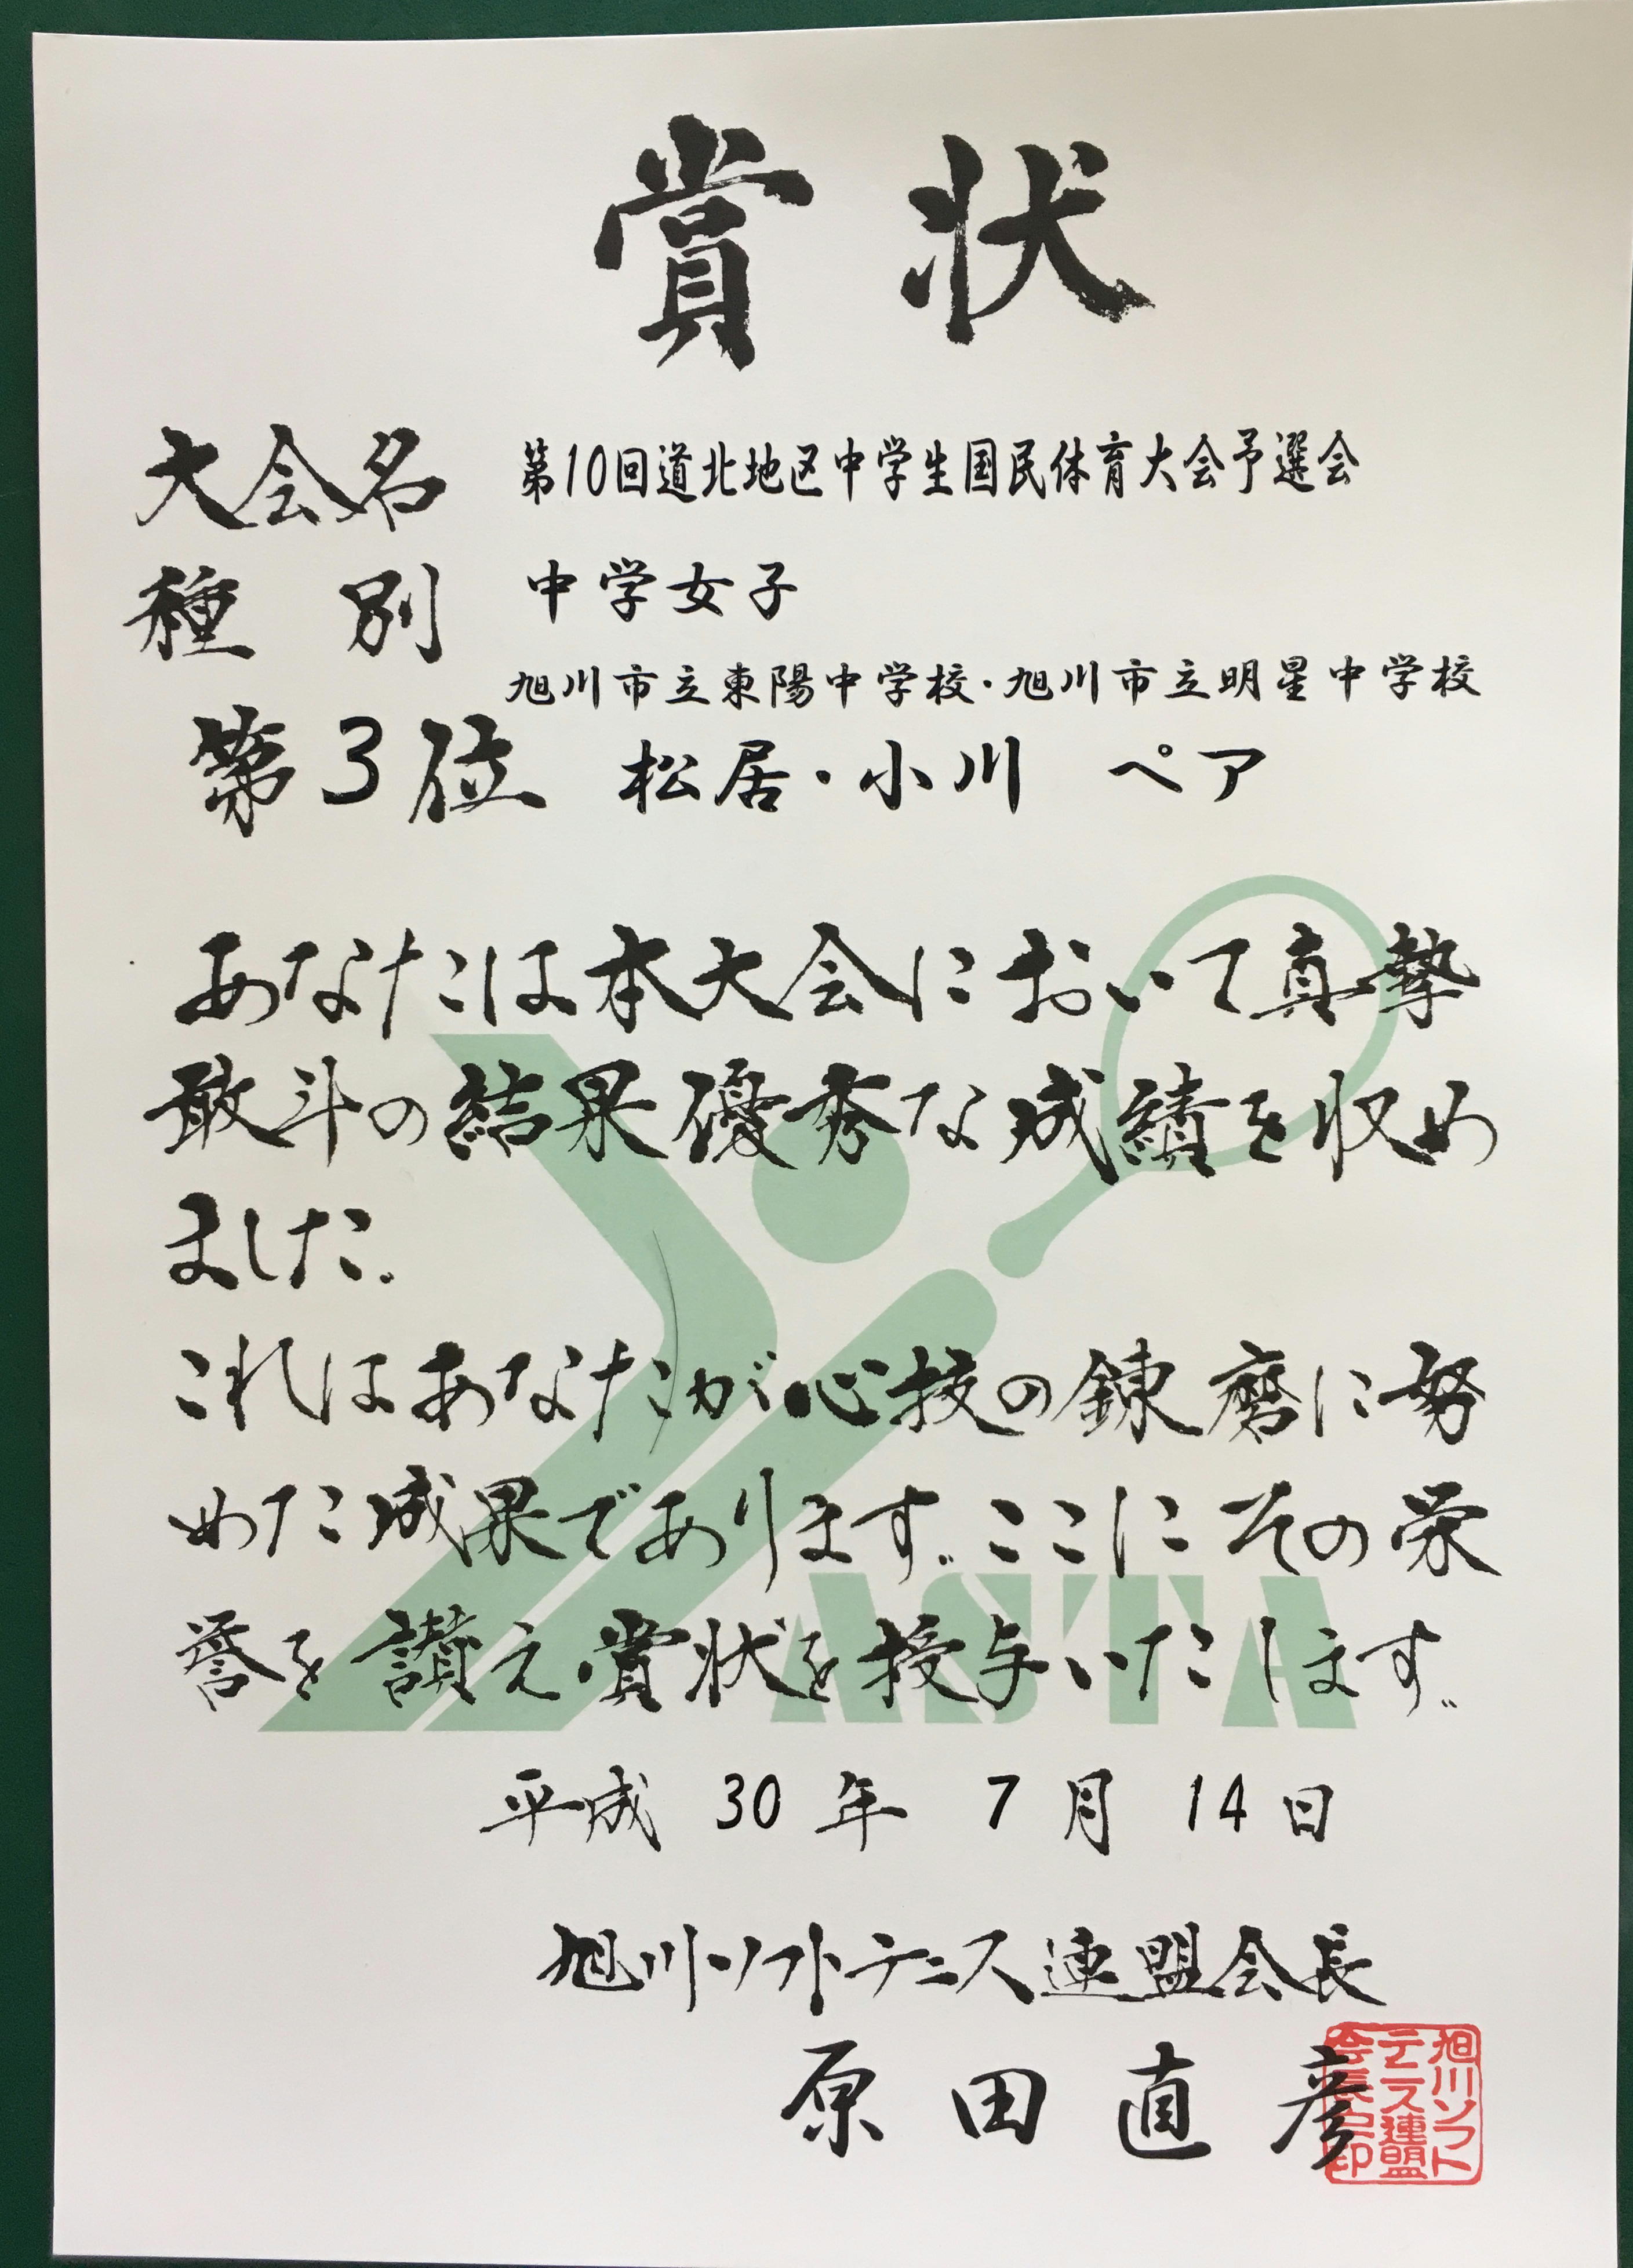 賞状
大会名 第10回道北地区中学生国民体育大会予選会
種別 中学女子
旭川市立東陽中学校・旭川市立明星中学校
第3位 松居・小川 ペア
あなたは本大会において真摯
敢斗の結果優秀な成績を収め
ました。
これはあなたが心技の錬磨に努
めた成果であります。ここにその栄
誉を讃え賞状を授与いたします。
ASTA
平成 30 年 7 月 14 日
旭川ソフトテニス連盟会長
原田直彦
旭川ソフト
テニス連盟
会長之印